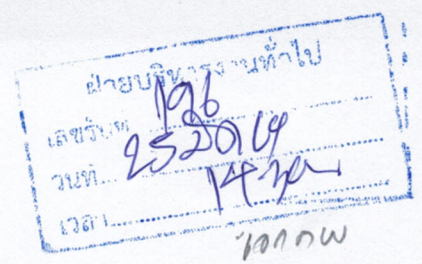 ฝ่ายบริหารงานทั่วไป
เลขรับที่ 196
วันที่ 25 มิค 69
เวลา 14